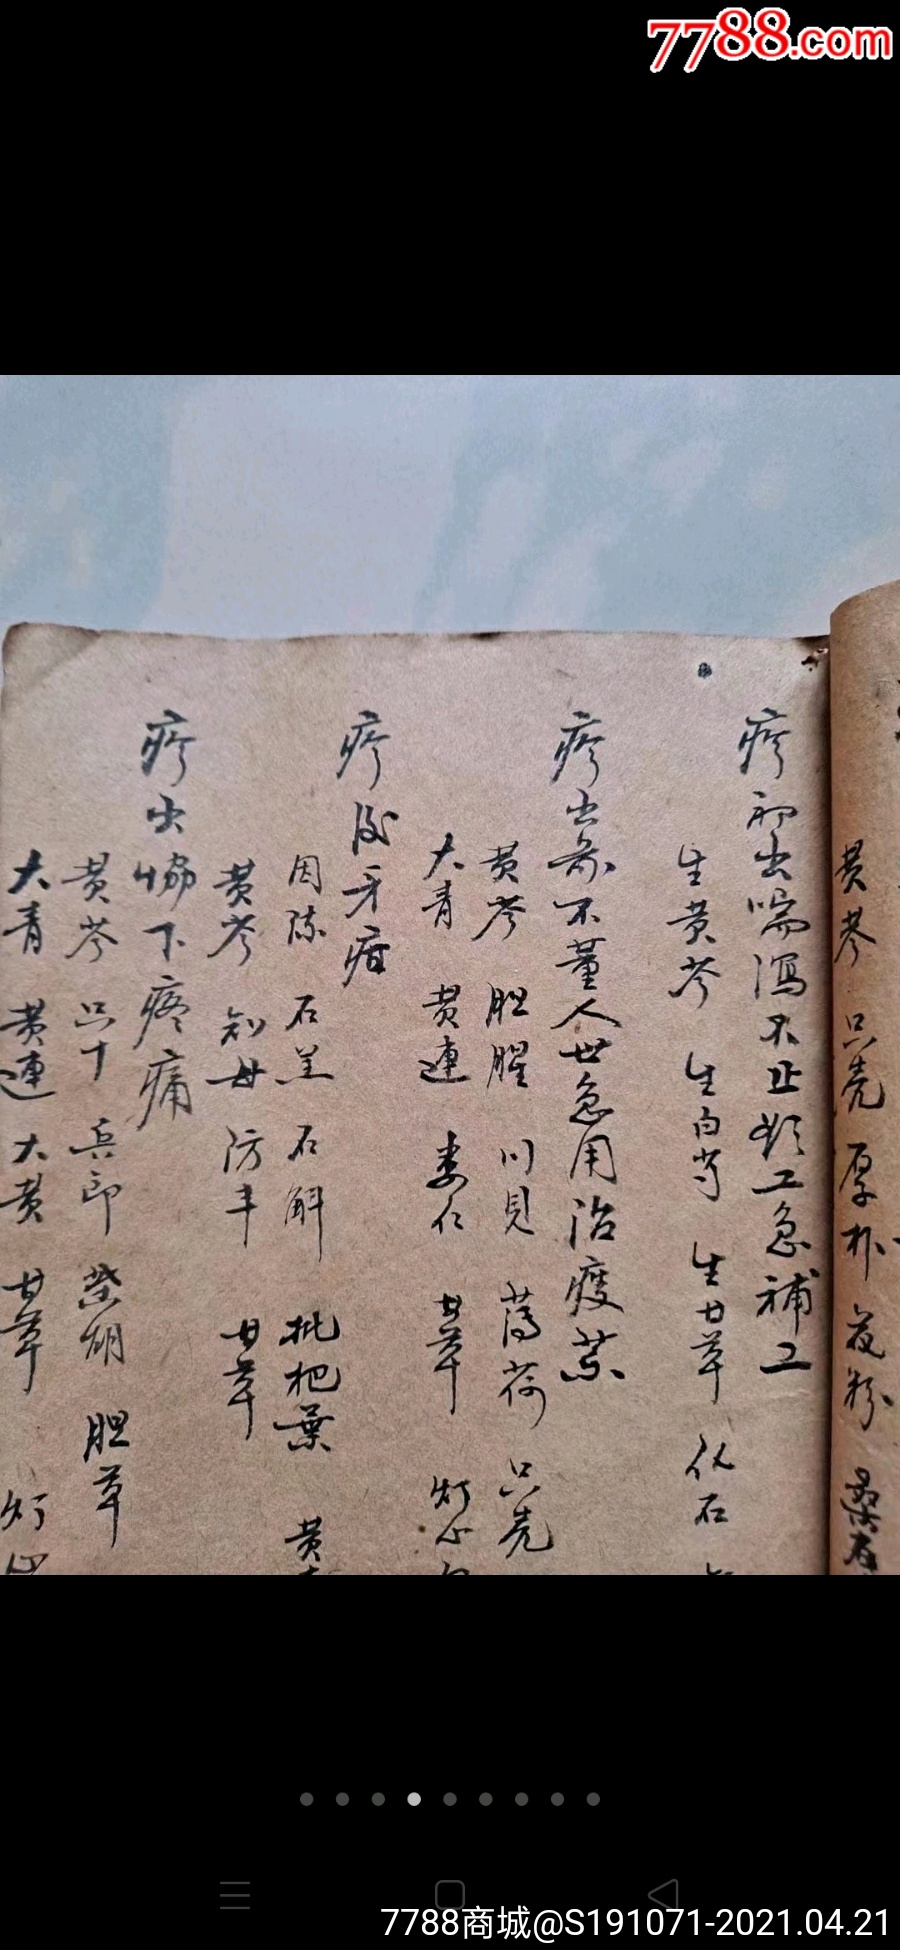 7788.com
黄芩 只壳 厚朴 花粉 桑
疹初出喘泻不止 工急補工
生黄芩 生白芍 生甘草 化石
疹出 不董人世急用治痰
黄芩 胆腥 川見 薄荷 只壳
大青 黄連 娄仁 甘草 灯心
疹后牙疳
因陈 石羔 石斛 枇杷葉 黄
黄芩 知母 防丰 甘草
疹出協下疼痛
黄芩 只十 兵郎 柴胡 胆草
大青 黄連 大黄 甘草 灯心
7788商城@S191071-2021.04.21